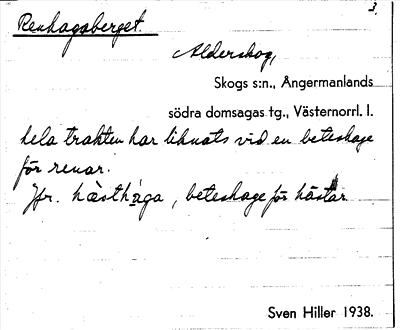 3.
Renhagsberget.
Alderskog,
Skogs s:n., Ångermanlands
södra domsagas tg., Västernorrl. l.
hela trakten har liknats vid en beteshage
för renar.
Jfr. hæsthaga, beteshage för hästar
Sven Hiller 1938.